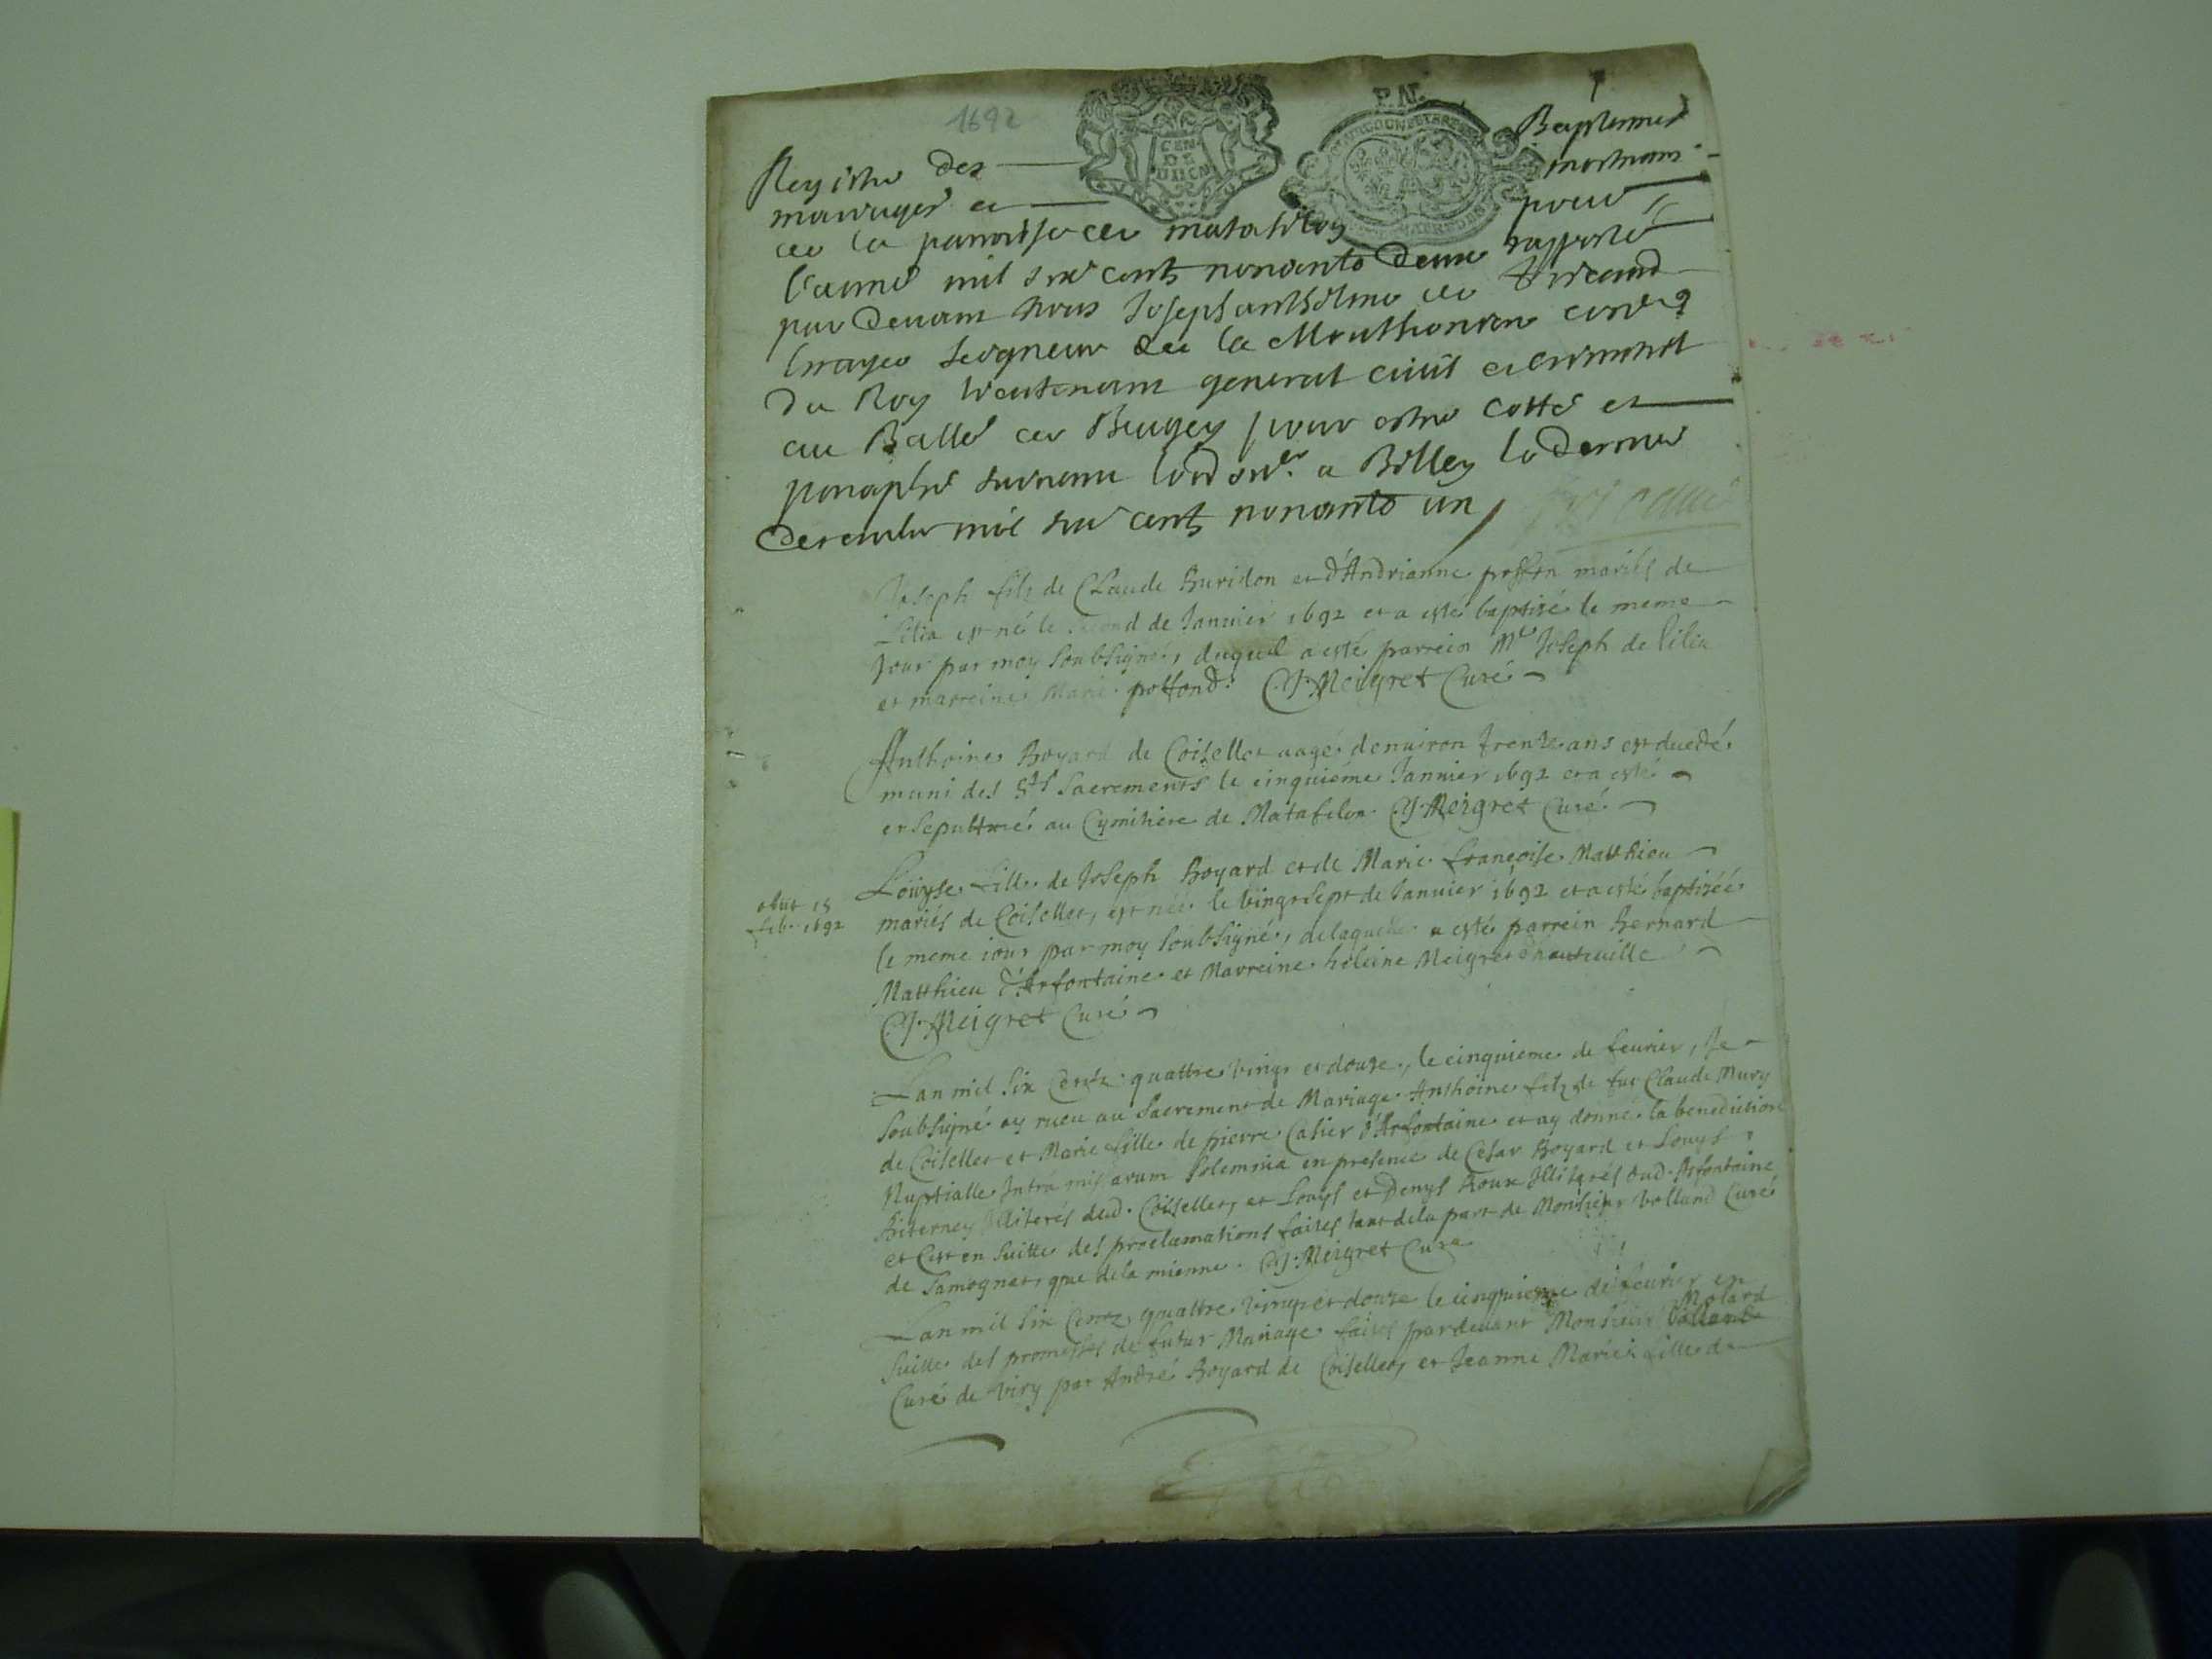 1692
P.N.
GEN
DE
Registre des Baptemes
mariages et mortuaires
de la parroisse de matafelon pour
l'année mil six cents nonante deux rapporté
par devant nous Joseph anthelme de Tricaud
seigneur de la
du Roy lieutenant general civil et criminel
au Balliage de Bugey pour estre cotté et
paraphé suivant a Belley le dernier
decembre mil six cents nonante un
Tricaud
Joseph filz de Claude Buridon et d'Andrianne mariés de
Lilia est né le second de Januier 1692 et a esté baptizé le meme
Jour par moy soubsigné, duquel a esté parrein Mre Joseph de Lilia
et marreine Marie C.J. Meigret Curé
Anthoine Boyard de Coisellet aagé denuiron trente ans est decedé
muni des Sts Sacrements le cinquiéme Januier 1692 et a esté
ensepulturé au Cymitiere de Matafelon. C.J. Meigret Curé
obiit 15
feb. 1692
Loüyse fille de Joseph Boyard et de Marie françoise Matthieu
mariés de Coisellet, est née le vingt sept de Januier 1692 et a esté baptizée
le meme iour par moy soubsigné, de laquelle a esté parrein Bernard
Matthieu d'Arfontaine et Marreine heleine Meigret
C.J. Meigret Curé
Lan mil six Centz quattre vingt et douze, le cinquieme de feurier, Je
soubsigné ay receu au Sacrement de Mariage Anthoine filz de fut Claude Mury
de Coisellet et Marie fille de pierre Catier d'Arfontaine et ay donné la benediction
Nuptialle Intra missarum solemnia en presence de Cesar Boyard et Louys
Illiterés dud. Coisellet, et Louys et Denys Roux Illiterés dud. Arfontaine
et Cest en suitte des proclamations faites tant de la part de Monsieur Volland Curé
de Samognat, que de la mienne. C.J. Meigret Curé
Lan mil six Centz quattre vingt et douze le cinquieme de feurier en
suitte des promesses de futur Mariage faites pardeuant Monsieur Molard
Curé de Viry par André Boyard de Coisellet, et Jeanne Marie fille de